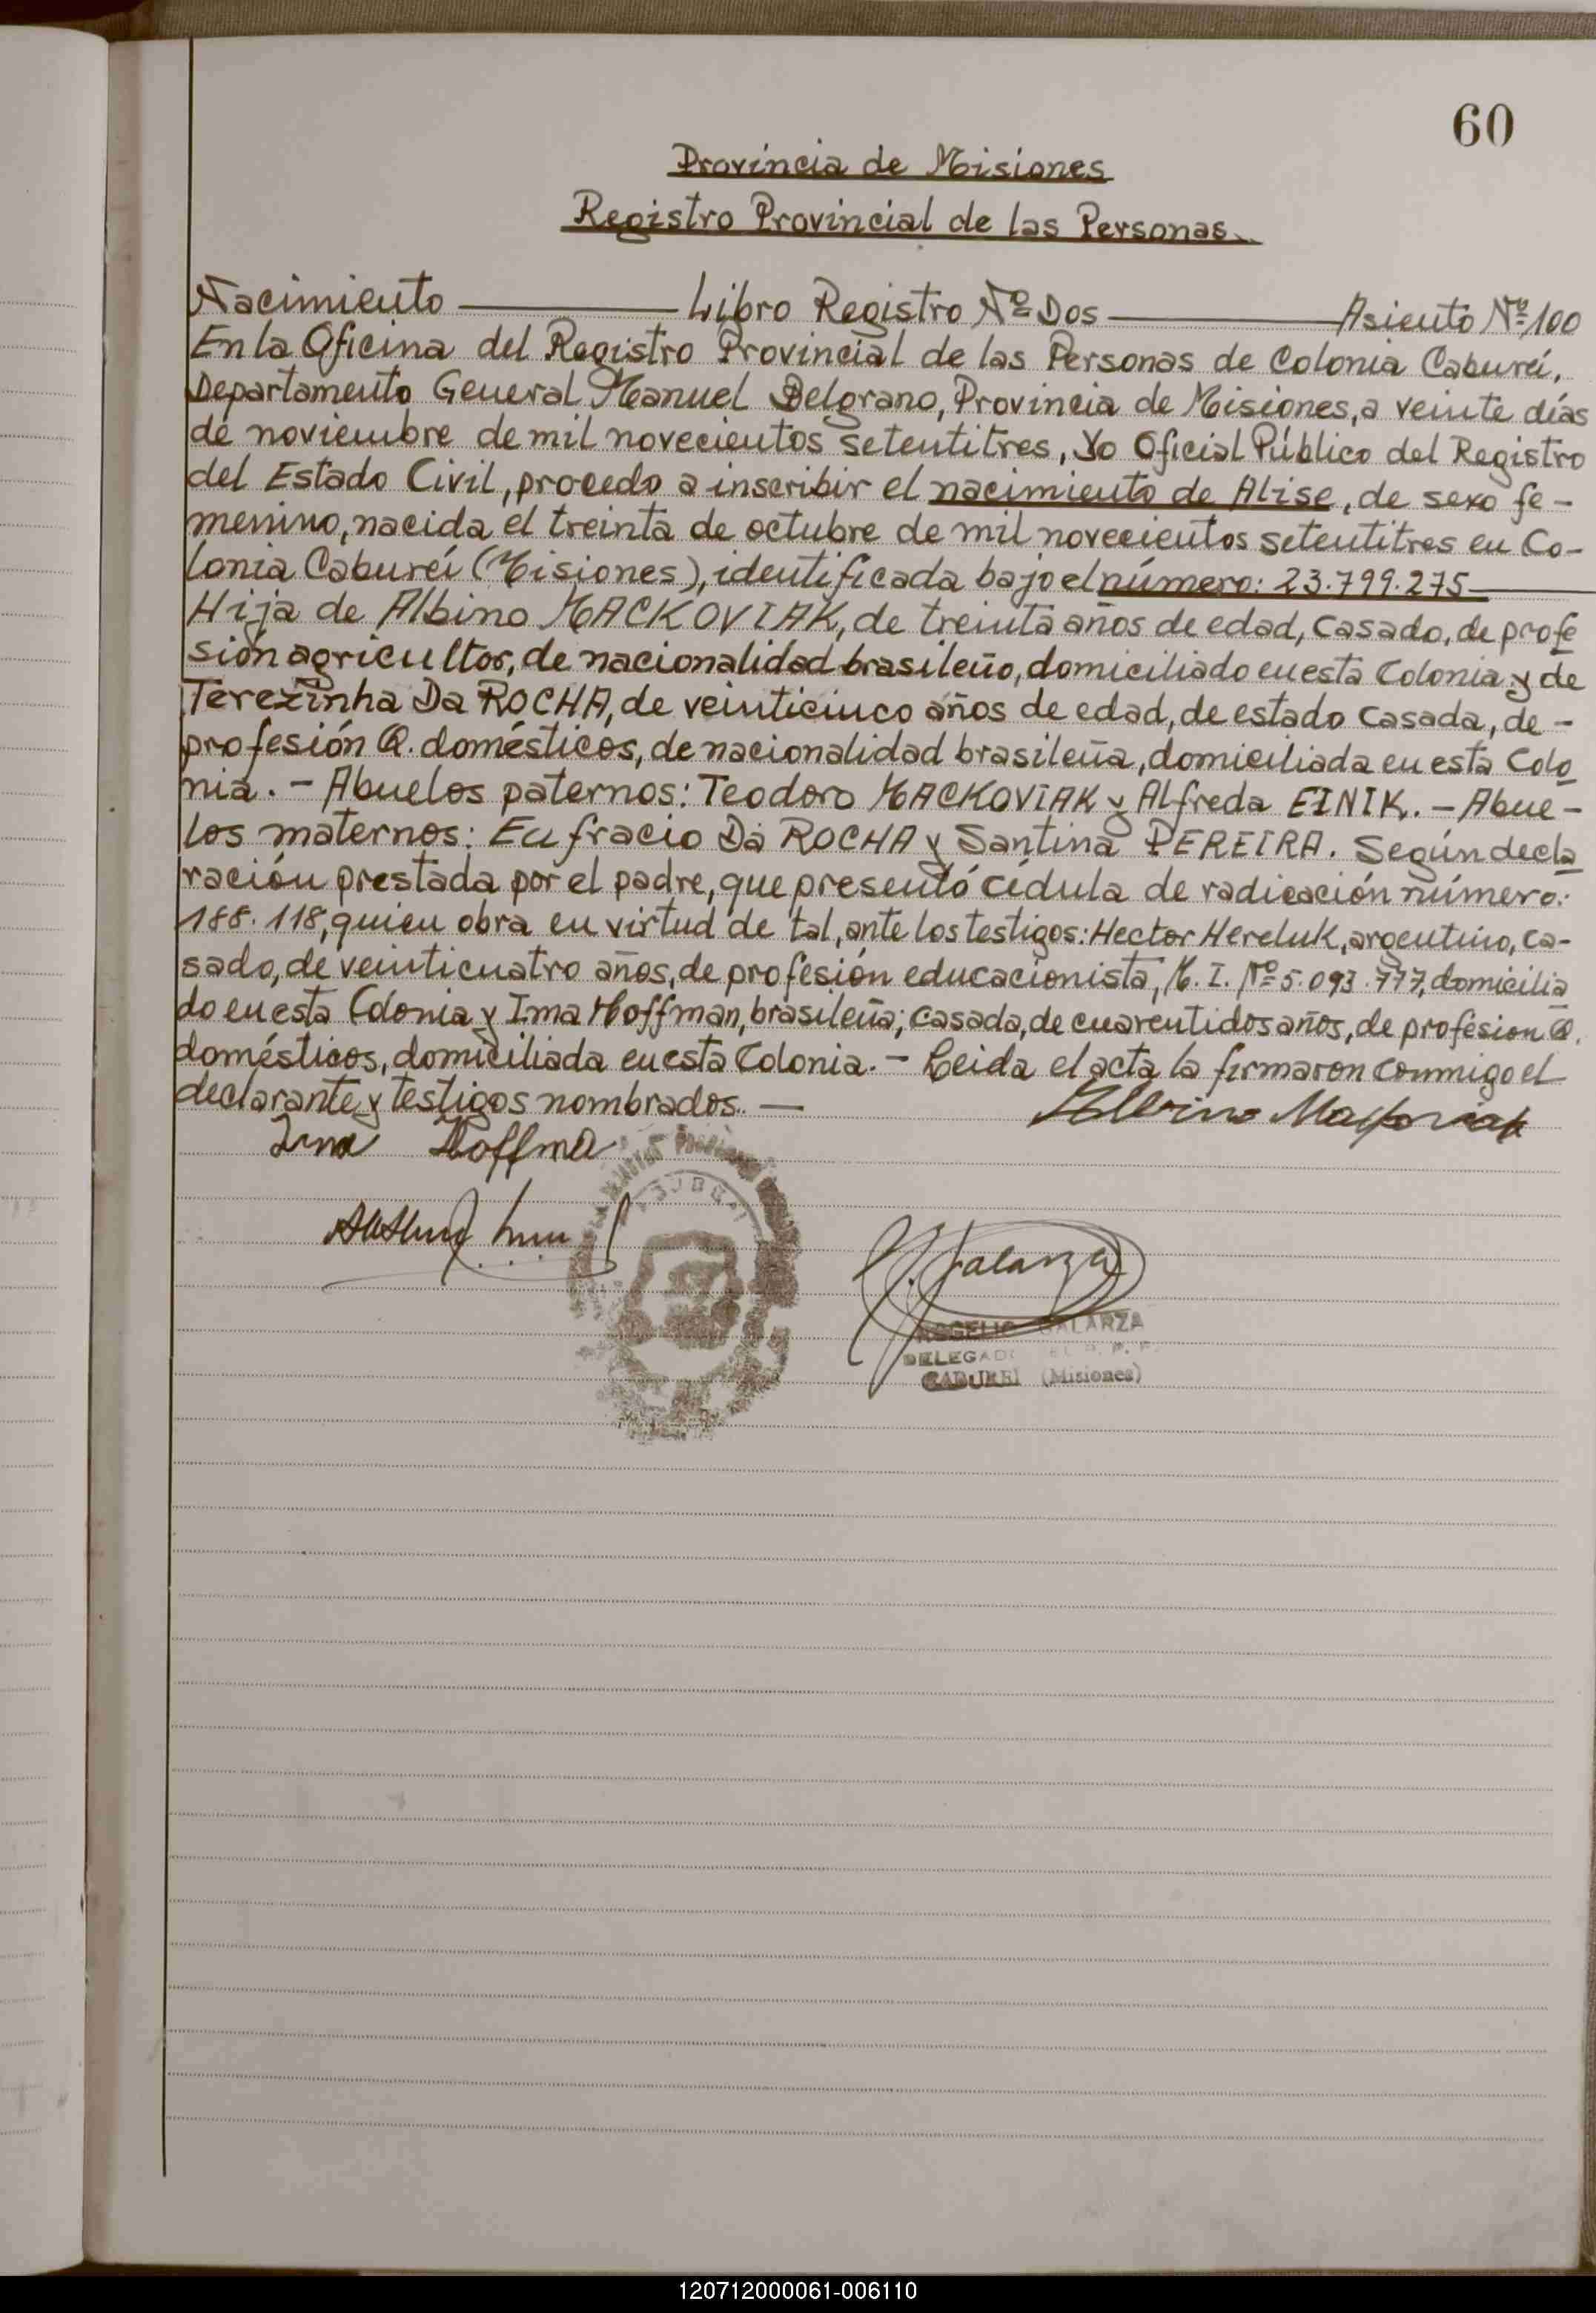 60
Provincia de Misiones
Registro Provincial de las Personas
Nacimiento — Libro Registro Nº Dos — Asiento Nº 100
En la Oficina del Registro Provincial de las Personas de Colonia Caburéí,
Departamento General Manuel Belgrano, Provincia de Misiones, a veinte días
de noviembre de mil novecientos setentitres, Yo Oficial Público del Registro
del Estado Civil, procedo a inscribir el nacimiento de Alise, de sexo fe-
menino, nacida el treinta de octubre de mil novecientos setentitres en Co-
lonia Caburéí (Misiones), identificada bajo el número: 23.799.275 —
Hija de Albino MACKOVIAK, de treinta años de edad, casado, de profe
sión agricultor, de nacionalidad brasileño, domiciliado en esta Colonia y de
Terezinha Da ROCHA, de veinticinco años de edad, de estado casada, de -
profesión Q. domésticos, de nacionalidad brasileña, domiciliada en esta Colo
nia. - Abuelos paternos: Teodoro MACKOVIAK y Alfreda EINIK. - Abue-
los maternos: Eufracio Da ROCHA y Santina PEREIRA. Según decla
ración prestada por el padre, que presentó cédula de radicación número:
188.118, quien obra en virtud de tal, ante los testigos: Hector Hereluk, argentino, ca-
sado, de veinticuatro años, de profesión educacionista, M. I. Nº 5.093.777, domicilia
do en esta Colonia y Ima Hoffman, brasileña; casada, de cuarentidos años, de profesion Q.
domésticos, domiciliada en esta Colonia. - Leida el acta la firmaron conmigo el
declarante y testigos nombrados. —
Albino Mackoviak
Ima Hoffma
Galarza
ROGELIO GALARZA
DELEGADO
CABUREI (Misiones)
120712000061-006110